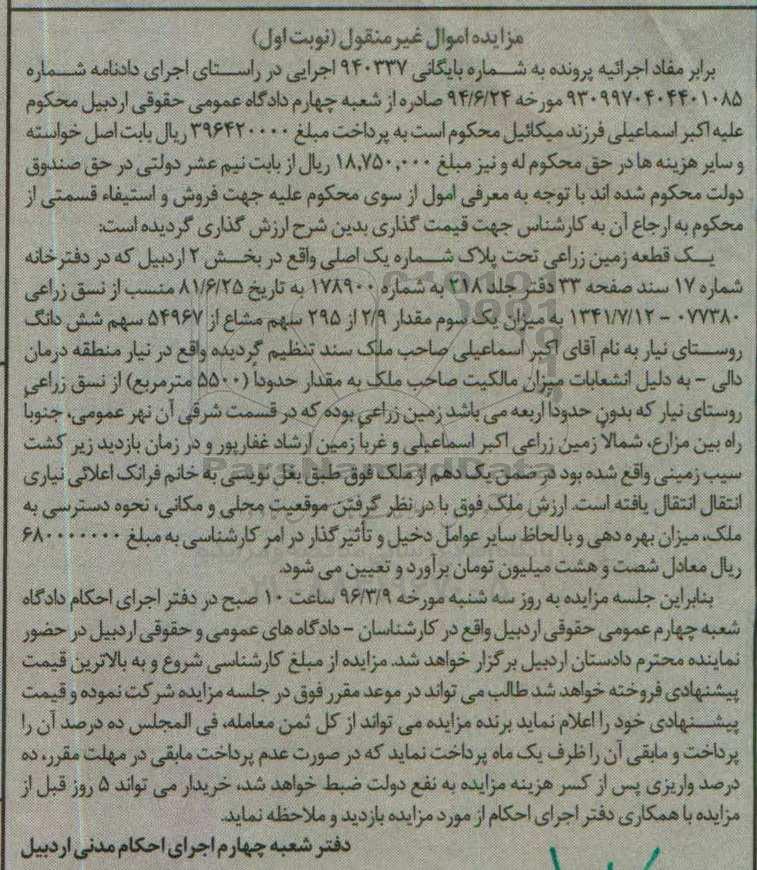 مزایده اموال غیر منقول (نوبت اول)
برابر مفاد اجرائیه پرونده به شماره بایگانی ۹۴۰۳۳۷ اجرایی در راستای اجرای دادنامه شماره
۹۳۰۹۹۷۰۴۰۴۴۰۱۰۸۵ مورخه ۹۴/۶/۲۴ صادره از شعبه چهارم دادگاه عمومی حقوقی اردبیل محکوم
علیه اکبر اسماعیلی فرزند میکائیل محکوم است به پرداخت مبلغ ۳۹۶۴۲۰۰۰۰ ریال بابت اصل خواسته
و سایر هزینه ها در حق محکوم له و نیز مبلغ ۱۸,۷۵۰,۰۰۰ ریال از بابت نیم عشر دولتی در حق صندوق
دولت محکوم شده اند با توجه به معرفی امول از سوی محکوم علیه جهت فروش و استیفاء قسمتی از
محکوم به ارجاع آن به کارشناس جهت قیمت گذاری بدین شرح ارزش گذاری گردیده است:
یک قطعه زمین زراعی تحت پلاک شماره یک اصلی واقع در بخش ۲ اردبیل که در دفترخانه
شماره ۱۷ سند صفحه ۳۳ دفتر جلد ۲۱۸ به شماره ۱۷۸۹۰۰ به تاریخ ۸۱/۶/۲۵ منسب از نسق زراعی
۰۷۷۳۸۰ - ۱۳۴۱/۷/۱۲ به میزان یک سوم مقدار ۲/۹ از ۲۹۵ سهم مشاع از ۵۴۹۶۷ سهم شش دانگ
روستای نیار به نام آقای اکبر اسماعیلی صاحب ملک سند تنظیم گردیده واقع در نیار منطقه درمان
دالی - به دلیل انشعابات میزان مالکیت صاحب ملک به مقدار حدوداً (۵۵۰۰ مترمربع) از نسق زراعی
روستای نیار که بدون حدوداً اربعه می باشد زمین زراعی بوده که در قسمت شرقی آن نهر عمومی، جنوباً
راه بین مزارع، شمالاً زمین زراعی اکبر اسماعیلی و غرباً زمین ارشاد غفارپور و در زمان بازدید زیر کشت
سیب زمینی واقع شده بود در ضمن یک دهم از ملک فوق طبق بغل نویسی به خانم فرانک اعلائی نیاری
انتقال انتقال یافته است. ارزش ملک فوق با در نظر گرفتن موقعیت محلی و مکانی، نحوه دسترسی به
ملک، میزان بهره دهی و با لحاظ سایر عوامل دخیل و تأثیر گذار در امر کارشناسی به مبلغ ۶۸۰۰۰۰۰۰۰
ریال معادل شصت و هشت میلیون تومان برآورد و تعیین می شود.
بنابراین جلسه مزایده به روز سه شنبه مورخه ۹۶/۳/۹ ساعت ۱۰ صبح در دفتر اجرای احکام دادگاه
شعبه چهارم عمومی حقوقی اردبیل واقع در کارشناسان - دادگاه های عمومی و حقوقی اردبیل در حضور
نماینده محترم دادستان اردبیل برگزار خواهد شد. مزایده از مبلغ کارشناسی شروع و به بالاترین قیمت
پیشنهادی فروخته خواهد شد طالب می تواند در موعد مقرر فوق در جلسه مزایده شرکت نموده و قیمت
پیشنهادی خود را اعلام نماید برنده مزایده می تواند از کل ثمن معامله، فی المجلس ده درصد آن را
پرداخت و مابقی آن را ظرف یک ماه پرداخت نماید که در صورت عدم پرداخت مابقی در مهلت مقرر، ده
درصد واریزی پس از کسر هزینه مزایده به نفع دولت ضبط خواهد شد، خریدار می تواند ۵ روز قبل از
مزایده با همکاری دفتر اجرای احکام از مورد مزایده بازدید و ملاحظه نماید.
دفتر شعبه چهارم اجرای احکام مدنی اردبیل
ParsNamadData